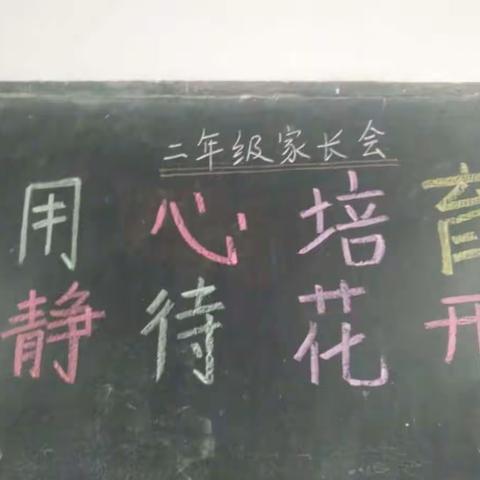 二年级家长会
用心培育
静待花开